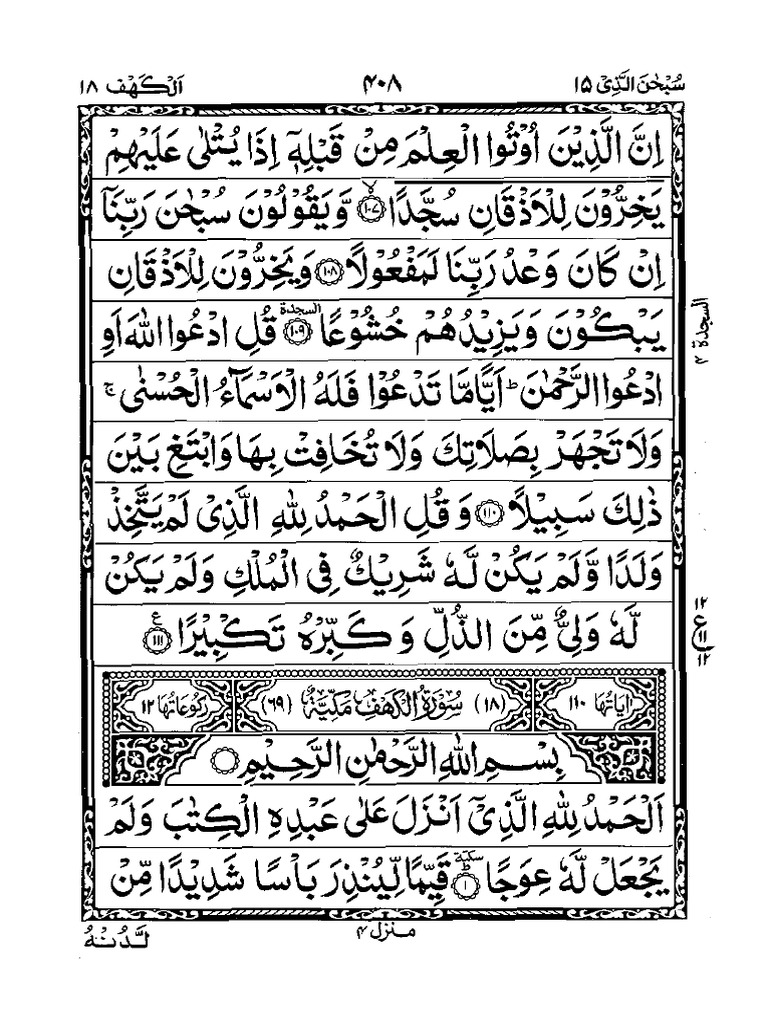 سُبْحٰنَ الَّذِیْ ۱۵
۴۰۸
اَلْكَهْف ۱۸
اِنَّ الَّذِیْنَ اُوْتُوا الْعِلْمَ مِنْ قَبْلِهٖۤ اِذَا یُتْلٰی عَلَیْهِمْ
یَخِرُّوْنَ لِلْاَذْقَانِ سُجَّدًا ۙ﴿۱۰۷﴾ وَّیَقُوْلُوْنَ سُبْحٰنَ رَبِّنَاۤ
اِنْ كَانَ وَعْدُ رَبِّنَا لَمَفْعُوْلًا ﴿۱۰۸﴾ وَیَخِرُّوْنَ لِلْاَذْقَانِ
یَبْكُوْنَ وَیَزِیْدُهُمْ خُشُوْعًا ﴿۱۰۹﴾ السجدة قُلِ ادْعُوا اللّٰهَ اَوِ
السجدة ۴
ادْعُوا الرَّحْمٰنَ ؕ اَیًّا مَّا تَدْعُوْا فَلَهُ الْاَسْمَآءُ الْحُسْنٰی ۚ
وَلَا تَجْهَرْ بِصَلَاتِكَ وَلَا تُخَافِتْ بِهَا وَابْتَغِ بَیْنَ
ذٰلِكَ سَبِیْلًا ﴿۱۱۰﴾ وَ قُلِ الْحَمْدُ لِلّٰهِ الَّذِیْ لَمْ یَتَّخِذْ
وَلَدًا وَّلَمْ یَكُنْ لَّهٗ شَرِیْكٌ فِی الْمُلْكِ وَلَمْ یَكُنْ
لَّهٗ وَلِیٌّ مِّنَ الذُّلِّ وَ كَبِّرْهُ تَكْبِیْرًا ﴿۱۱۱﴾ ع
۱۲
ع ۱۱
۱۲
اٰیَاتُهَا ۱۱۰
(۱۸) سُوْرَةُ الْكَهْفِ مَكِّیَّةٌ (۶۹)
رُكُوْعَاتُهَا ۱۲
بِسْمِ اللّٰهِ الرَّحْمٰنِ الرَّحِیْمِ
اَلْحَمْدُ لِلّٰهِ الَّذِیْۤ اَنْزَلَ عَلٰی عَبْدِهِ الْكِتٰبَ وَلَمْ
یَجْعَلْ لَّهٗ عِوَجًا ؕ﴿۱﴾ سكتة قَیِّمًا لِّیُنْذِرَ بَاْسًا شَدِیْدًا مِّنْ
منزل ۴
لَّدُنْهُ